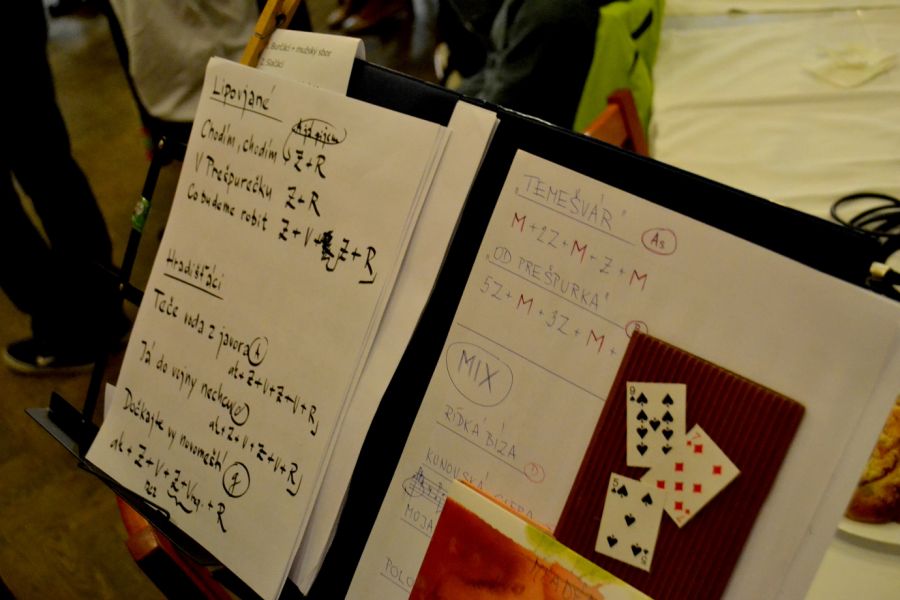 Burčáci + mužský sbor
2. Sláčáci
Lipovjané
Chodím, chodím Z+R
V Prešpurečku Z+R
Co budeme robit Z+V+Z+R
Hradišťáci
Teče voda z javora A
at+Z+V+Z+V+R
Já do vojny nechcu
at+Z+V+Z+V+R
Dočkajte vy novomeští
at+Z+V+Z+Vrg.+R
nez
„TEMEŠVÁR" As
M+2Z+M+Z+M
„OD PREŠPURKA"
5Z+M+3Z+M+
MIX
RÍDKÁ BÍZA D
KUNOVSKÁ
MOJA
POLO
9
7
5
5